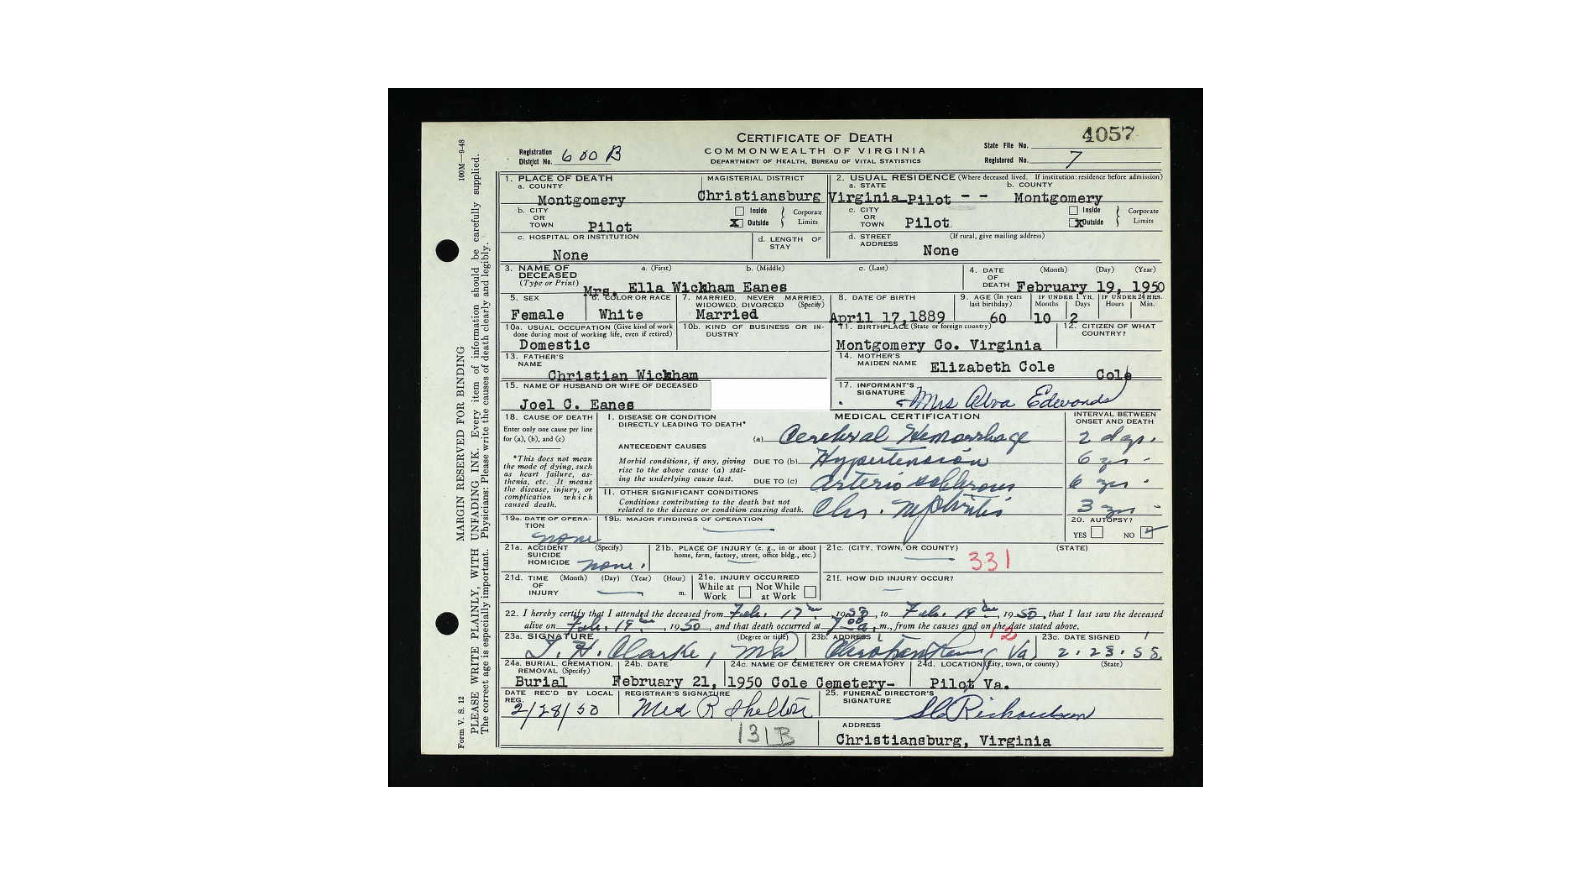 CERTIFICATE OF DEATH
4057
COMMONWEALTH OF VIRGINIA
DEPARTMENT OF HEALTH, BUREAU OF VITAL STATISTICS
Registration District No. 600 B
State File No.
Registered No. 7
100M—9-48
MARGIN RESERVED FOR BINDING
PLEASE WRITE PLAINLY, WITH UNFADING INK. Every item of information should be carefully supplied.
The correct age is especially important. Physicians: Please write the causes of death clearly and legibly.
Form V. S. 12
1. PLACE OF DEATH
a. COUNTY
Montgomery
MAGISTERIAL DISTRICT
Christiansburg
2. USUAL RESIDENCE (Where deceased lived. If institution: residence before admission)
a. STATE
b. COUNTY
Virginia Pilot - - Montgomery
b. CITY OR TOWN Pilot
Inside
X Outside
Corporate Limits
c. CITY OR TOWN Pilot
Inside
X Outside
Corporate Limits
c. HOSPITAL OR INSTITUTION
None
d. LENGTH OF STAY
d. STREET ADDRESS (If rural, give mailing address)
None
3. NAME OF DECEASED (Type or Print)
a. (First) b. (Middle) c. (Last)
Mrs. Ella Wickham Eanes
4. DATE OF DEATH (Month) (Day) (Year)
February 19, 1950
5. SEX
Female
6. COLOR OR RACE
White
7. MARRIED, NEVER MARRIED, WIDOWED, DIVORCED (Specify)
Married
8. DATE OF BIRTH
April 17,1889
9. AGE (In years last birthday)
60
IF UNDER 1 YR. Months Days
10 2
IF UNDER 24 HRS. Hours Min.
10a. USUAL OCCUPATION (Give kind of work done during most of working life, even if retired)
Domestic
10b. KIND OF BUSINESS OR INDUSTRY
11. BIRTHPLACE (State or foreign country)
Montgomery Co. Virginia
12. CITIZEN OF WHAT COUNTRY?
13. FATHER'S NAME
Christian Wickham
14. MOTHER'S MAIDEN NAME Elizabeth Cole
Cole
15. NAME OF HUSBAND OR WIFE OF DECEASED
Joel C. Eanes
17. INFORMANT'S SIGNATURE Mrs Alva Edwards
18. CAUSE OF DEATH
Enter only one cause per line for (a), (b), and (c)
*This does not mean the mode of dying, such as heart failure, asthenia, etc. It means the disease, injury, or complication which caused death.
MEDICAL CERTIFICATION
INTERVAL BETWEEN ONSET AND DEATH
I. DISEASE OR CONDITION DIRECTLY LEADING TO DEATH*
(a) Cerebral Hemorrhage 2 days.
ANTECEDENT CAUSES
Morbid conditions, if any, giving rise to the above cause (a) stating the underlying cause last.
DUE TO (b) Hypertension 6 yrs.
DUE TO (c) 6 yrs.
II. OTHER SIGNIFICANT CONDITIONS
Conditions contributing to the death but not related to the disease or condition causing death.
Chr. 3 yrs.
19a. DATE OF OPERATION
none
19b. MAJOR FINDINGS OF OPERATION
20. AUTOPSY?
YES NO
21a. ACCIDENT SUICIDE HOMICIDE (Specify)
none.
21b. PLACE OF INJURY (e. g., in or about home, farm, factory, street, office bldg., etc.)
21c. (CITY, TOWN, OR COUNTY) (STATE)
331
21d. TIME OF INJURY (Month) (Day) (Year) (Hour) m.
21e. INJURY OCCURRED
While at Work Not While at Work
21f. HOW DID INJURY OCCUR?
22. I hereby certify that I attended the deceased from Feb. 17th, 1950, to Feb. 19th, 1950, that I last saw the deceased
alive on Feb. 19th, 1950, and that death occurred at m., from the causes and on the date stated above.
12
23a. SIGNATURE (Degree or title)
T. H. Clarke, MD
23b. ADDRESS
Va
23c. DATE SIGNED
24a. BURIAL, CREMATION, REMOVAL (Specify)
Burial
24b. DATE
February 21, 1950
24c. NAME OF CEMETERY OR CREMATORY
Cole Cemetery-
24d. LOCATION (City, town, or county) (State)
Pilot Va.
DATE REC'D BY LOCAL REG.
2/28/50
REGISTRAR'S SIGNATURE
R Shelton
25. FUNERAL DIRECTOR'S SIGNATURE
Richardson
131B
ADDRESS
Christiansburg, Virginia